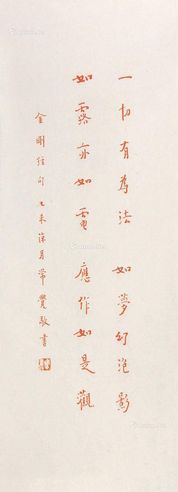 一切有為法 如夢幻泡影
如露亦如電 應作如是觀
金剛經句 乙未 月常覺敬書